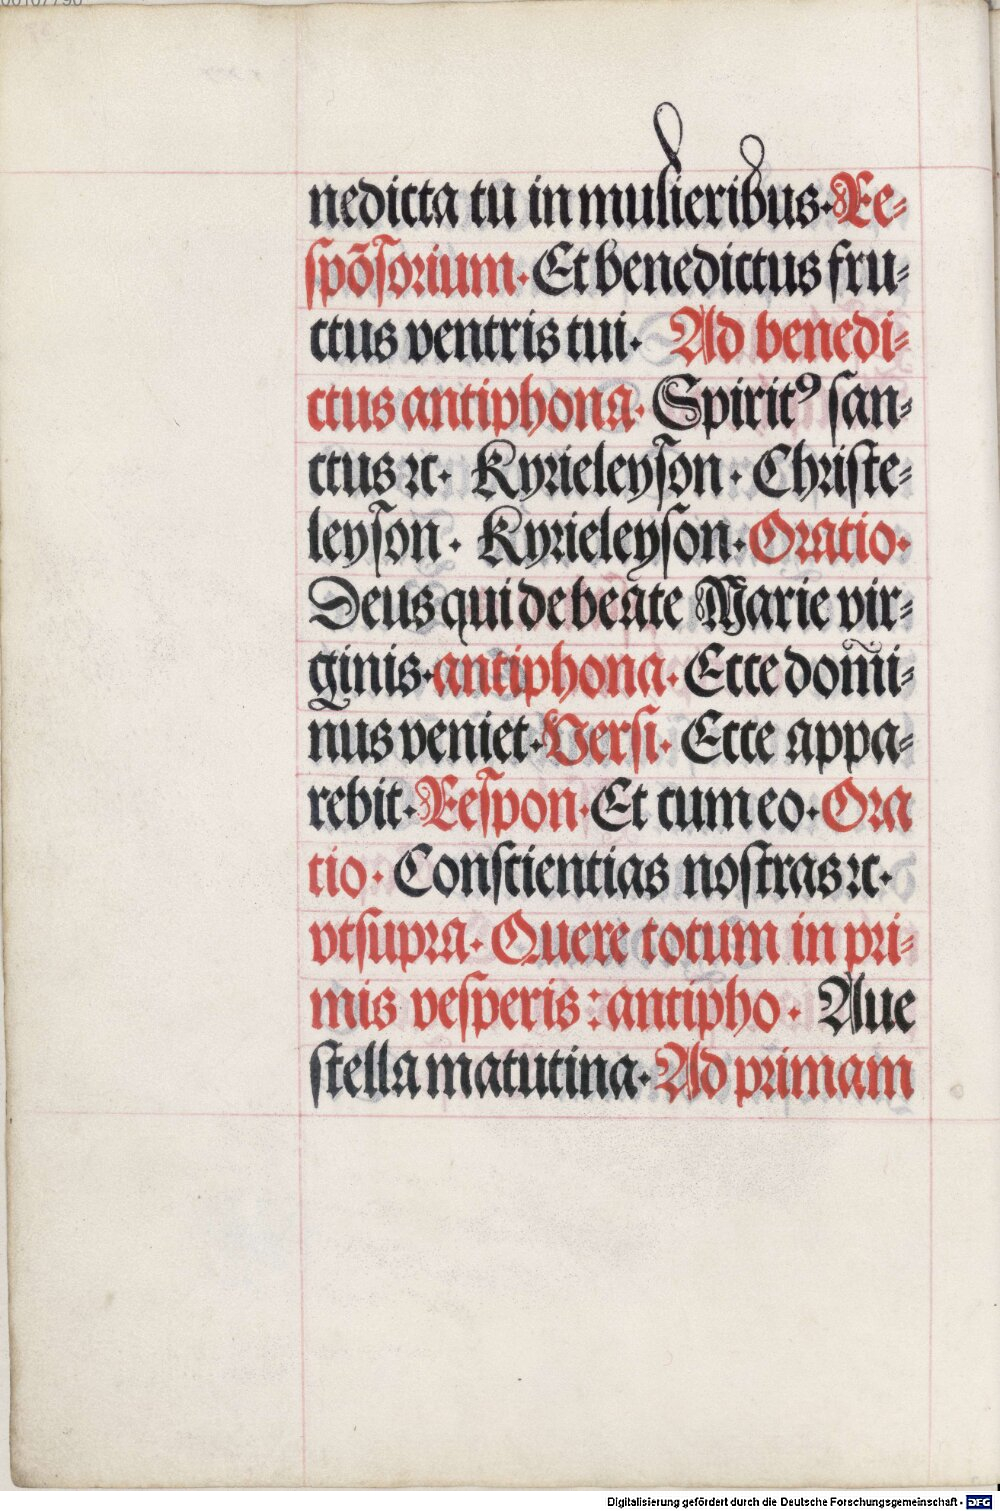 nedicta tu in mulieribus. Re-
spōsorium. Et benedictus fru-
ctus ventris tui. Ad benedi-
ctus antiphona. Spiritꝰ san-
ctus ⁊c. Kyrieleyson. Christe-
leyson. Kyrieleyson. Oratio.
Deus qui de beate Marie vir-
ginis. antiphona. Ecce domi-
nus veniet. Versi. Ecce appa-
rebit. Respon. Et cum eo. Ora
tio. Conscientias nostras ⁊c.
vt supra. Quere totum in pri-
mis vesperis: antipho. Aue
stella matutina. Ad primam
Digitalisierung gefördert durch die Deutsche Forschungsgemeinschaft - DFG